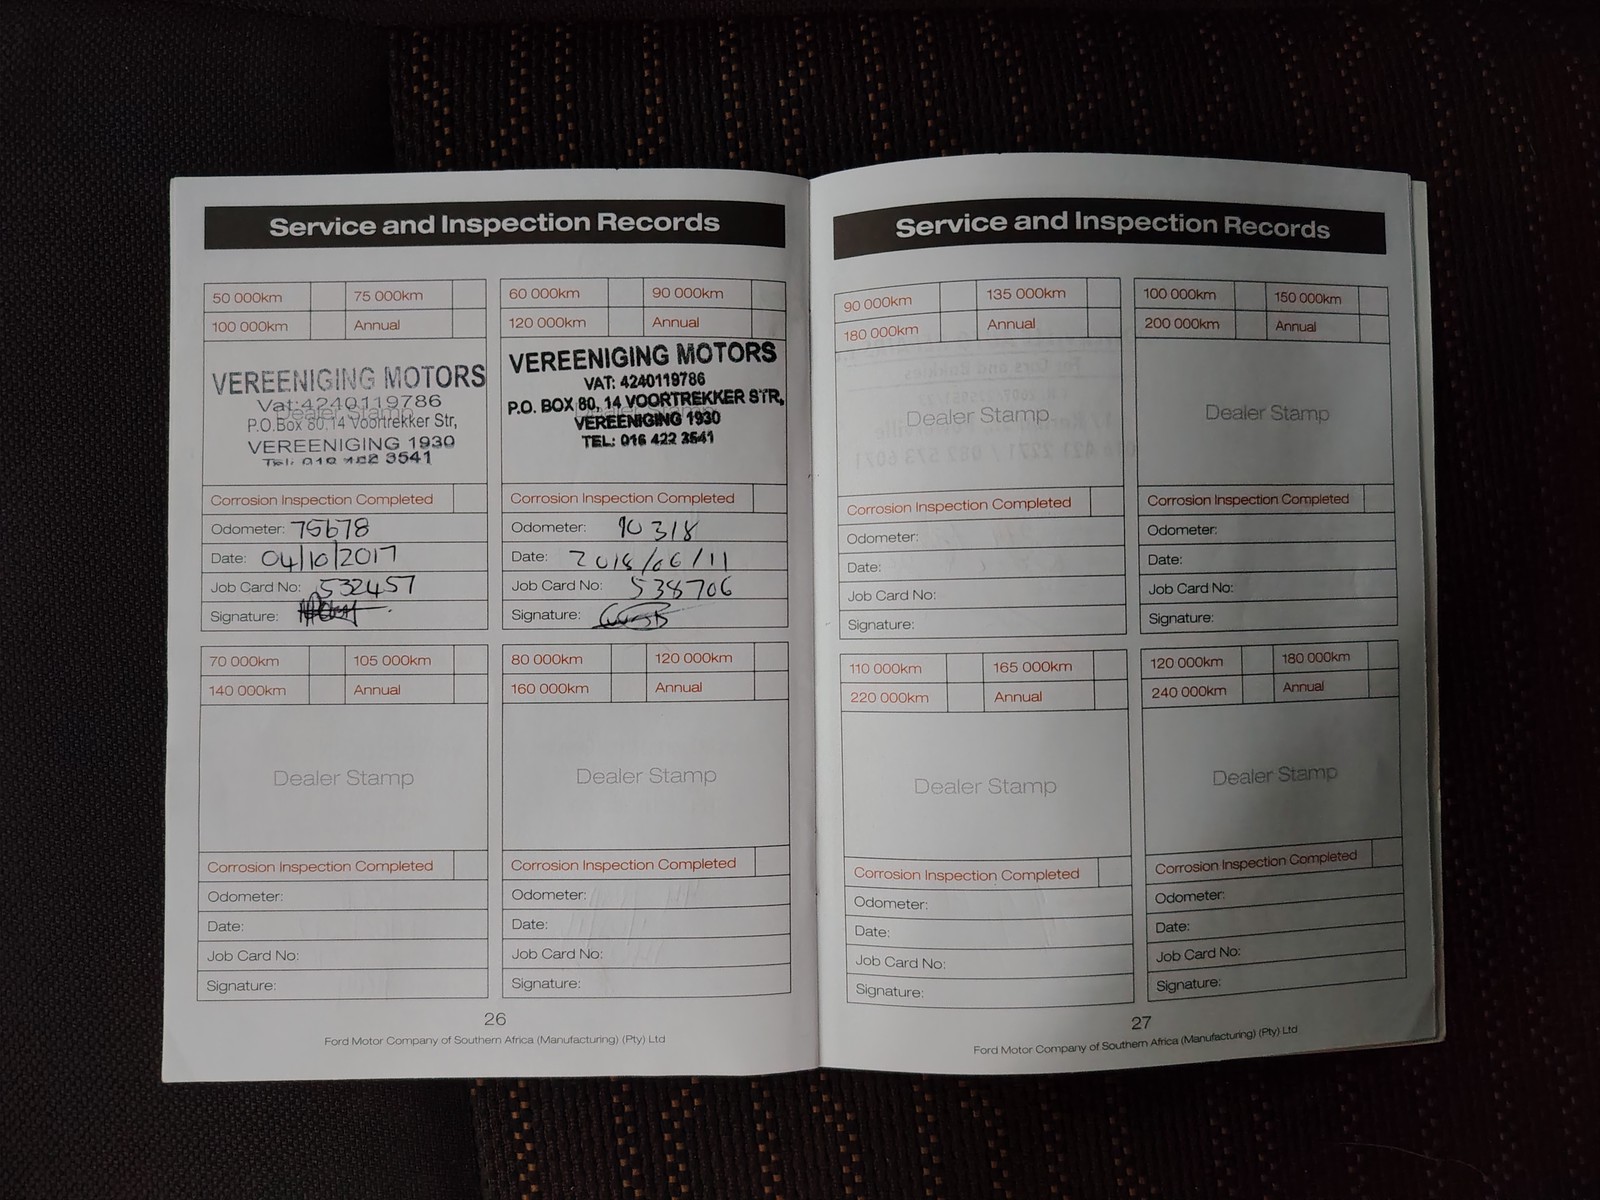 Service and Inspection Records
50 000km 75 000km
100 000km Annual
VEREENIGING MOTORS
Vat:4240119786
Dealer Stamp
P.O.Box 80,14 Voortrekker Str,
VEREENIGING 1930
Tel: 3541
Corrosion Inspection Completed
Odometer: 75678
Date: 04/10/2017
Job Card No: 532457
Signature:
60 000km 90 000km
120 000km Annual
VEREENIGING MOTORS
VAT: 4240119786
P.O. BOX 80, 14 VOORTREKKER STR,
VEREENIGING 1930
TEL: 016 422 3541
Corrosion Inspection Completed
Odometer: 90318
Date: 2018/06/11
Job Card No: 538706
Signature:
70 000km 105 000km
140 000km Annual
Dealer Stamp
Corrosion Inspection Completed
Odometer:
Date:
Job Card No:
Signature:
80 000km 120 000km
160 000km Annual
Dealer Stamp
Corrosion Inspection Completed
Odometer:
Date:
Job Card No:
Signature:
26
Ford Motor Company of Southern Africa (Manufacturing) (Pty) Ltd
Service and Inspection Records
90 000km 135 000km
180 000km Annual
Dealer Stamp
Corrosion Inspection Completed
Odometer:
Date:
Job Card No:
Signature:
100 000km 150 000km
200 000km Annual
Dealer Stamp
Corrosion Inspection Completed
Odometer:
Date:
Job Card No:
Signature:
110 000km 165 000km
220 000km Annual
Dealer Stamp
Corrosion Inspection Completed
Odometer:
Date:
Job Card No:
Signature:
120 000km 180 000km
240 000km Annual
Dealer Stamp
Corrosion Inspection Completed
Odometer:
Date:
Job Card No:
Signature:
27
Ford Motor Company of Southern Africa (Manufacturing) (Pty) Ltd